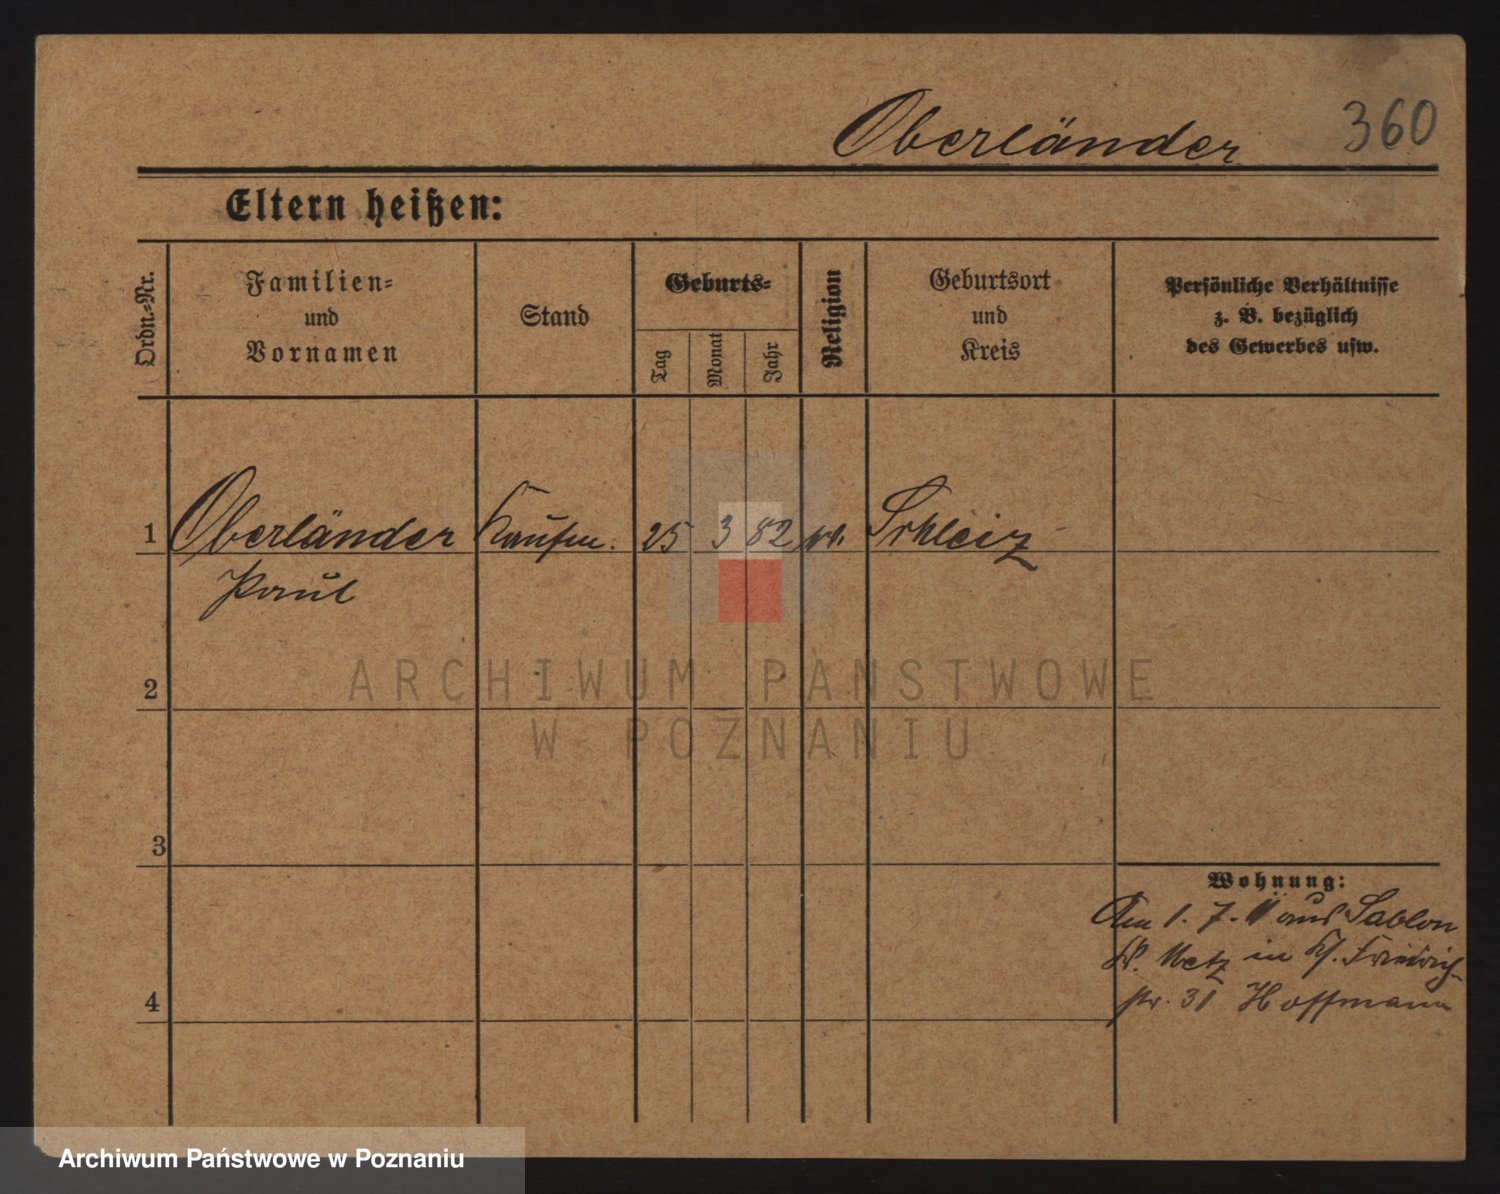 Oberländer 360
Eltern heißen:
Ordn.-Nr.
Familien-
und
Vornamen
Stand
Geburts-
Tag
Monat
Jahr
Religion
Geburtsort
und
Kreis
Persönliche Verhältnisse
z. B. bezüglich
des Gewerbes usw.
1 Oberländer Kaufm. 25 3 82 Schleiz
Paul
2
3
4
Wohnung:
Am 1. 7. 11 aus Sablon
Kr. Metz in Friedrich-
str. 31 Hoffmann
ARCHIWUM PAŃSTWOWE
W POZNANIU
Archiwum Państwowe w Poznaniu